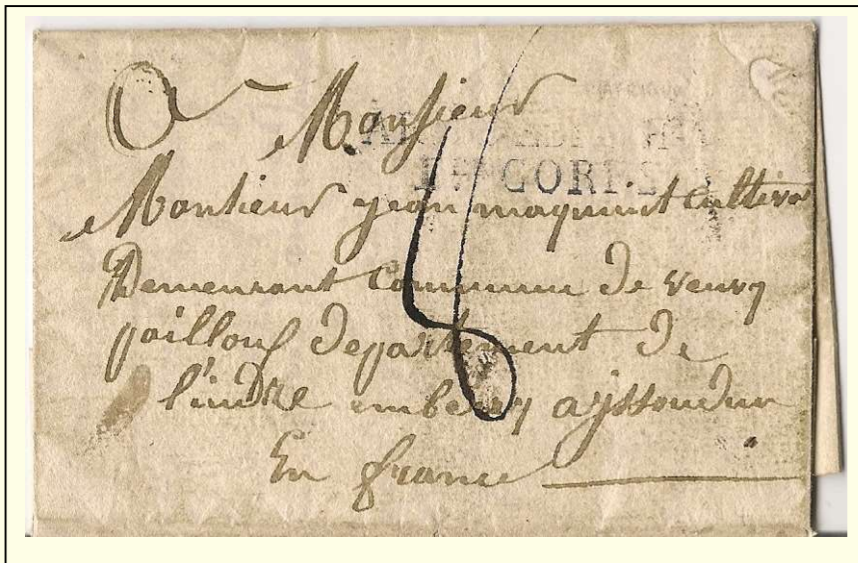 A Monsieur
Monsieur jean maquint cultiva
Demeurant commune de
departement de
l'indre enberry a yssoudun
En france
6